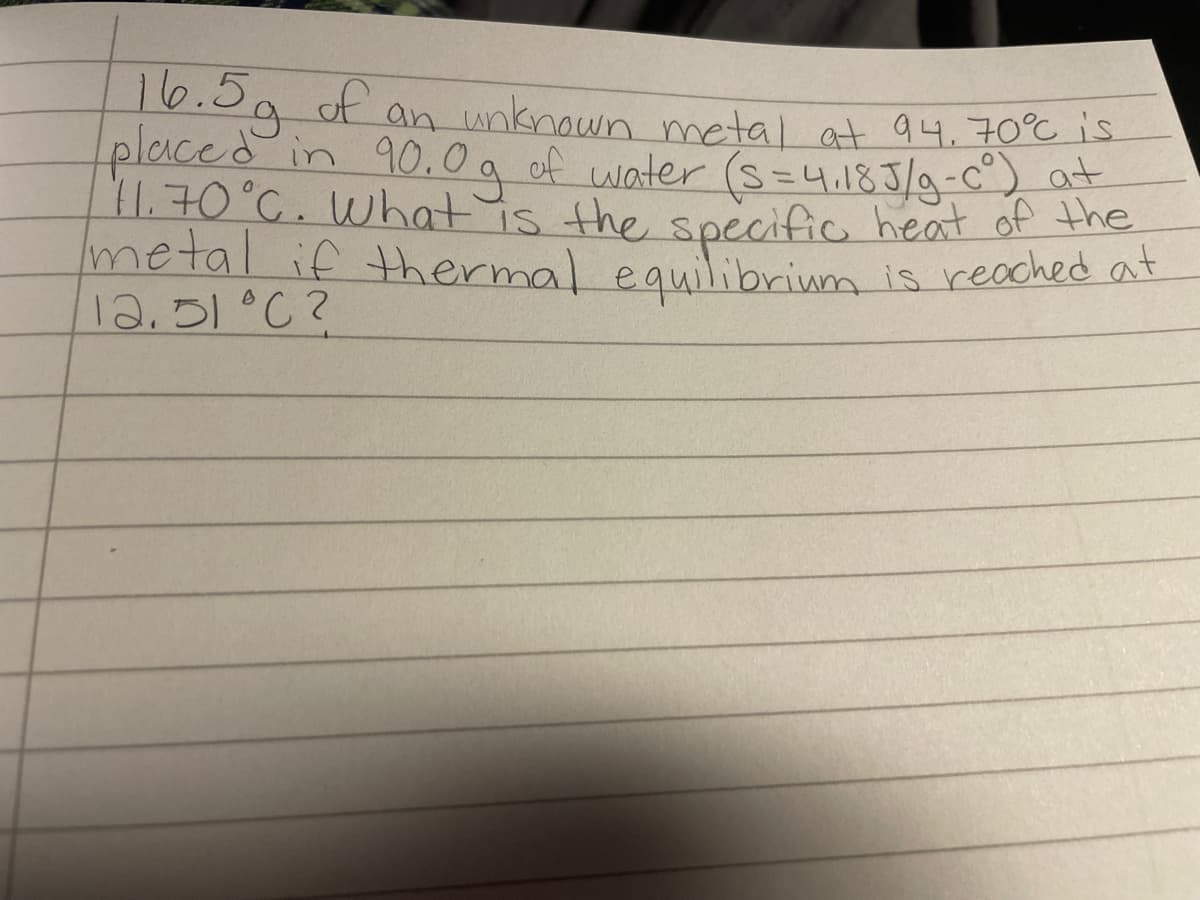 16.5g of an unknown metal at 94.70°C is
placed in 90.0g of water (s=4.18J/g-c°) at
11.70°C. What is the specific heat of the
metal if thermal equilibrium is reached at
12.51°C?